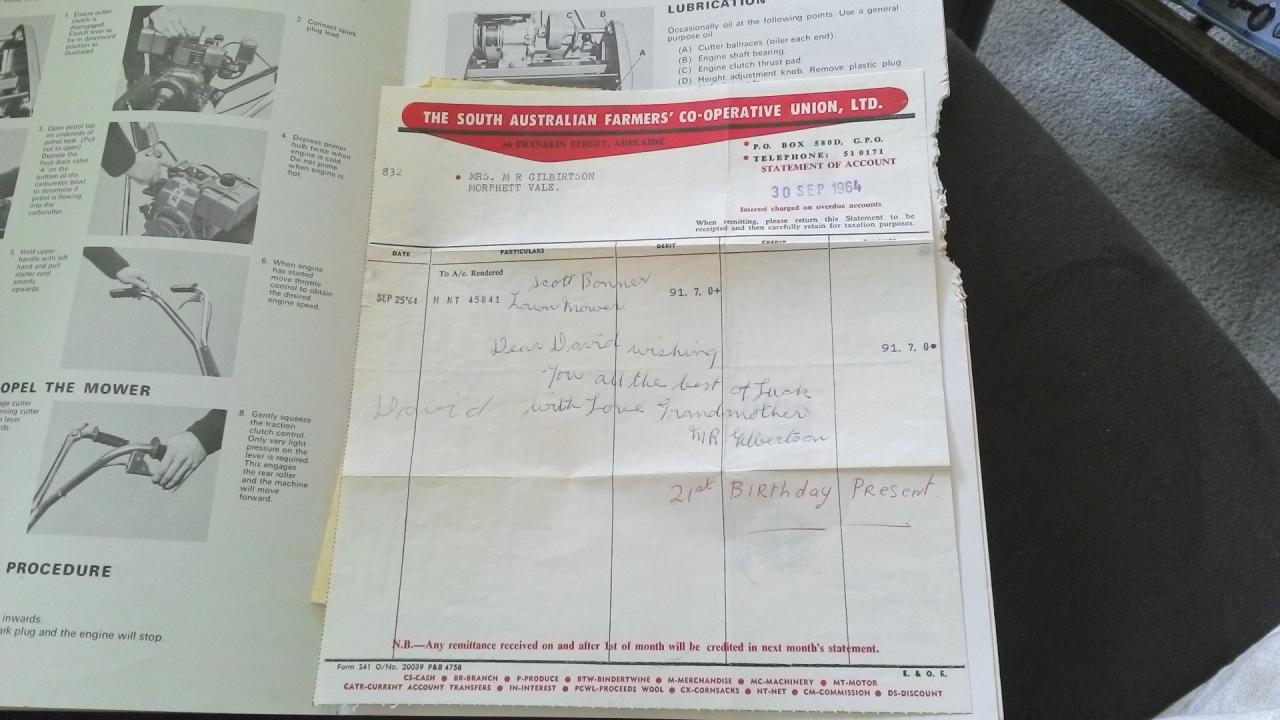 1. Ensure cutter
clutch is
disengaged.
Clutch lever to
be in downward
position as
illustrated.
2. Connect spark
plug lead.
3. Open petrol tap
on underside of
petrol tank. (Pull
out to open).
Depress the
float drain valve
'A' on the
bottom of the
carburettor bowl
to determine if
petrol is flowing
into the
carburettor.
4. Depress primer
bulb twice when
engine is cold.
Do not prime
when engine is
hot.
5. Hold upper
handle with left
hand and pull
starter cord
smartly
upwards.
6. When engine
has started
move throttle
control to obtain
the desired
engine speed.
OPEL THE MOWER
age cutter
ning cutter
lever
rds.
8. Gently squeeze
the traction
clutch control.
Only very light
pressure on the
lever is required.
This engages
the rear roller
and the machine
will move
forward.
PROCEDURE
inwards.
ark plug and the engine will stop.
C B
A
LUBRICATION
Occasionally oil at the following points. Use a general
purpose oil.
(A) Cutter ballraces (oiler each end).
(B) Engine shaft bearing.
(C) Engine clutch thrust pad.
(D) Height adjustment knob. Remove plastic plug
THE SOUTH AUSTRALIAN FARMERS' CO-OPERATIVE UNION, LTD.
36 FRANKLIN STREET, ADELAIDE
P.O. BOX 580D, G.P.O.
TELEPHONE: 51 0171
STATEMENT OF ACCOUNT
832
MRS. M R GILBERTSON
MORPHETT VALE.
30 SEP 1964
Interest charged on overdue accounts
When remitting, please return this Statement to be
receipted and then carefully retain for taxation purposes.
DATE PARTICULARS DEBIT CREDIT
To A/c. Rendered
Scott Bonner
SEP 25'64 M NT 45841 Lawn Mower 91. 7. 0+
Dear David wishing 91. 7. 0
You all the best of Luck
David with Love Grandmother
MR Gilbertson
21st Birthday Present.
N.B.—Any remittance received on and after 1st of month will be credited in next month's statement.
Form S41 O/No. 20039 P&B 4758 E. & O. E.
CS-CASH • BR-BRANCH • P-PRODUCE • BTW-BINDERTWINE • M-MERCHANDISE • MC-MACHINERY • MT-MOTOR
CATR-CURRENT ACCOUNT TRANSFERS • IN-INTEREST • PCWL-PROCEEDS WOOL • CX-CORNSACKS • NT-NET • CM-COMMISSION • DS-DISCOUNT